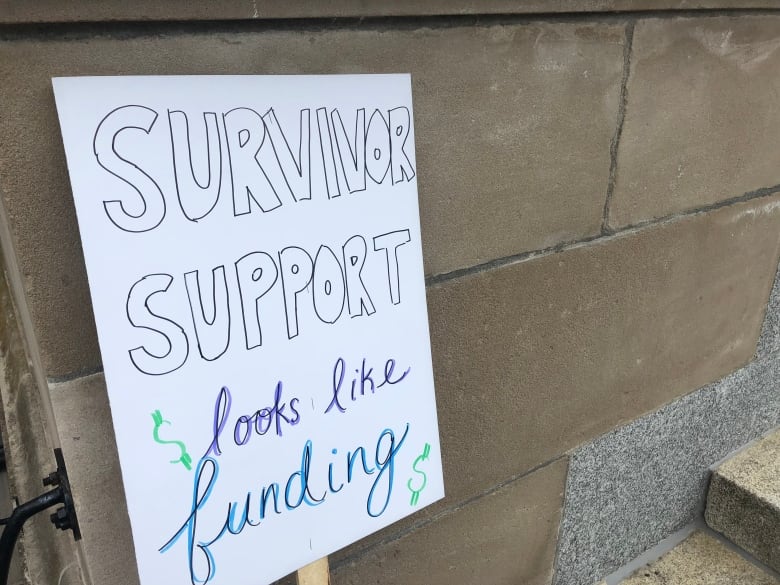 SURVIVOR
SUPPORT
$ looks like
funding $